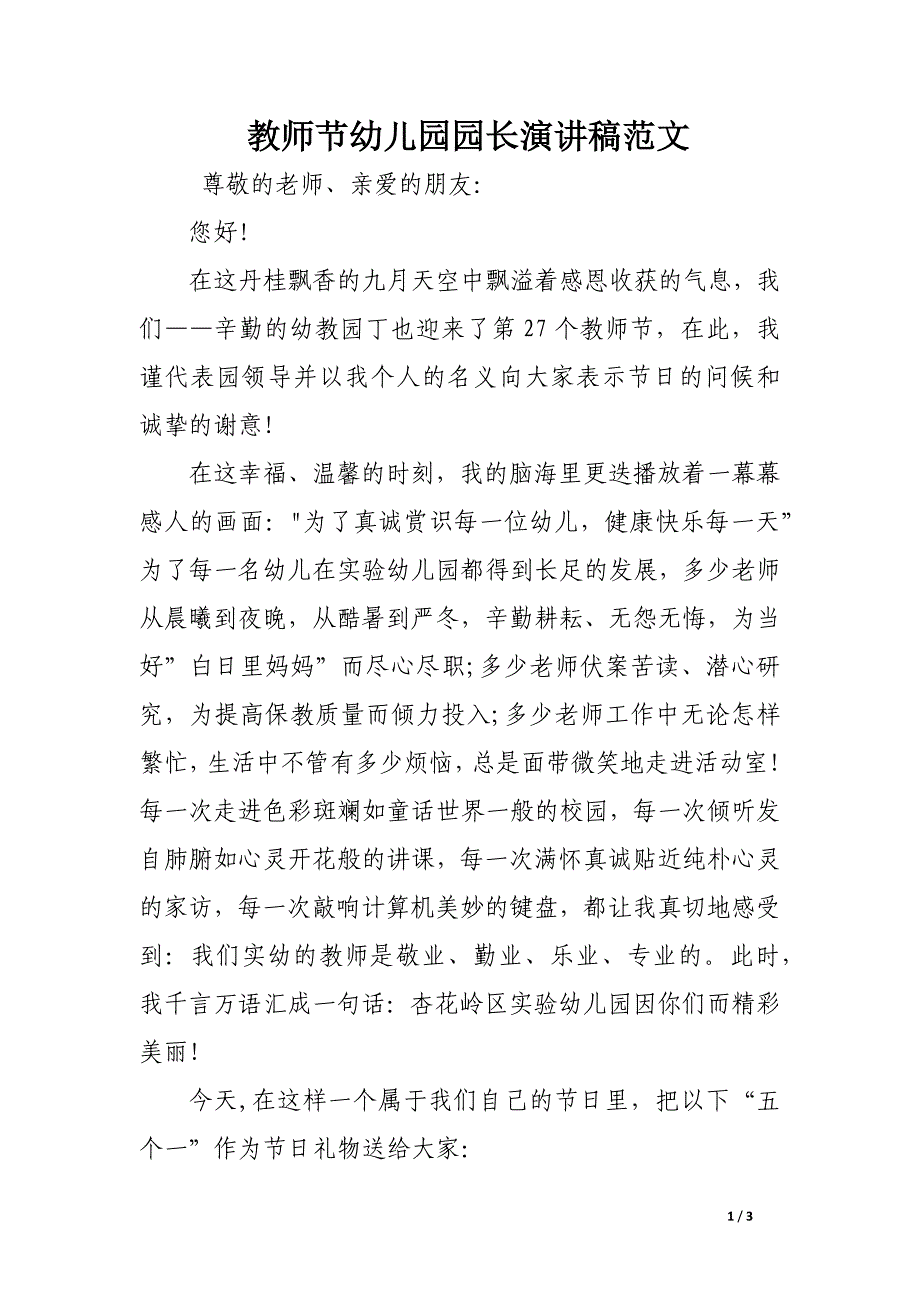 教师节幼儿园园长演讲稿范文
尊敬的老师、亲爱的朋友：
您好！
在这丹桂飘香的九月天空中飘溢着感恩收获的气息，我
们——辛勤的幼教园丁也迎来了第 27 个教师节，在此，我
谨代表园领导并以我个人的名义向大家表示节日的问候和
诚挚的谢意！
在这幸福、温馨的时刻，我的脑海里更迭播放着一幕幕
感人的画面："为了真诚赏识每一位幼儿，健康快乐每一天”
为了每一名幼儿在实验幼儿园都得到长足的发展，多少老师
从晨曦到夜晚，从酷暑到严冬，辛勤耕耘、无怨无悔，为当
好”白日里妈妈”而尽心尽职；多少老师伏案苦读、潜心研
究，为提高保教质量而倾力投入；多少老师工作中无论怎样
繁忙，生活中不管有多少烦恼，总是面带微笑地走进活动室！
每一次走进色彩斑斓如童话世界一般的校园，每一次倾听发
自肺腑如心灵开花般的讲课，每一次满怀真诚贴近纯朴心灵
的家访，每一次敲响计算机美妙的键盘，都让我真切地感受
到：我们实幼的教师是敬业、勤业、乐业、专业的。此时，
我千言万语汇成一句话：杏花岭区实验幼儿园因你们而精彩
美丽！
今天,在这样一个属于我们自己的节日里，把以下“五
个一”作为节日礼物送给大家：
1 / 3